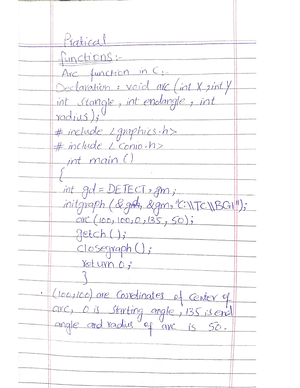 Pratical
functions:-
Arc function in C:-
Declaration = void arc (int X, int Y
int stangle, int endangle, int
radius);
# include <graphics.h>
# include <conio.h>
int main ()
{
int gd = DETECT, gm;
initgraph (&gd, &gm, "C:\\TC\\BGI");
arc (100, 100, 0, 135, 50);
getch ();
closegraph ();
return 0;
}
• (100,100) are coordinates of center of
arc, 0 is starting angle, 135 is end
angle and radius of arc is 50.